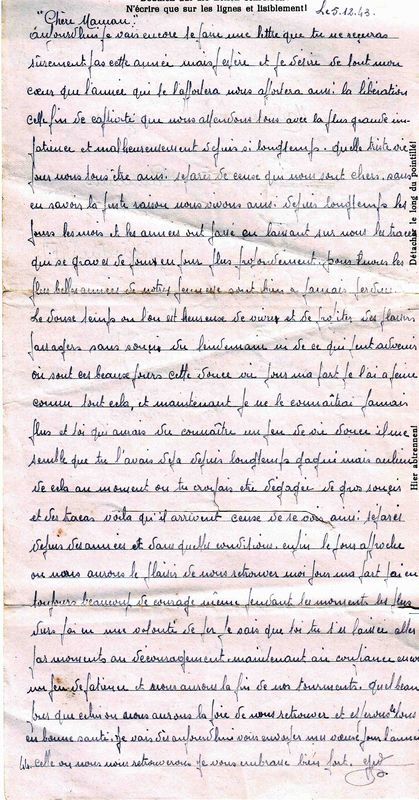 N'écrire que sur les lignes et lisiblement!
Le 5.12.43.
"Chère Maman"
aujourd'hui je vais encore te faire une lettre que tu ne recevras
sûrement pas cette année mais j'espère et je désire de tout mon
cœur que l'année qui te l'apportera nous apportera aussi la libération
cette fin de captivité que nous attendons tous avec la plus grande im-
patience et malheureusement depuis si longtemps. quelle triste vie
pour nous tous être ainsi séparés de ceuse qui nous sont chers. sans
en savoir la juste raison nous vivons ainsi depuis longtemps les
jours les mois et les années ont passé en laissant sur nous les traces
qui se graves de jour en jour plus profondément. pour nous les
plus belles années de notre jeunesse sont bien a jamais perdues.
Le douse temps ou l'on est heureuse de vivre et de profiter des plaisirs
passagers sans soucis du lendemain ni de ce qui peut advenir
ou sont ces beaux jours cette douce vie pour ma part je l'ai a peine
connu tout cela, et maintenant je ne le connaîtrai jamais
plus et toi qui aurais du connaître un peu de vie douce il me
semble que tu l'avais deja depuis longtemps gagné mais au lieu
de cela au moment ou tu croyais etre dégagée de gros soucis
et des tracas voila qu'il arrivent ceuse de se voir ainsi séparés
depuis des années et dans quelles conditions. enfin le jour approche
ou nous aurons le plaisir de nous retrouver moi pour ma part j'ai eu
toujours beaucoup de courage même pendant les moments les plus
durs j'ai eu une volonté de fer je sais que toi tu t'es laissée aller
par moments au découragement. maintenant aie confiance encore
un peu de patience et nous aurons la fin de nos tourments. quel beau
jour que celui ou nous aurons la joie de nous retrouver et espérons le tous
en bonne santé. je vais dès aujourd'hui vous envoyer mes vœux pour l'année
44. celle ou nous nous retrouverons je vous embrasse bien fort.
Détacher le long du pointillé!
Hier abtrennen!